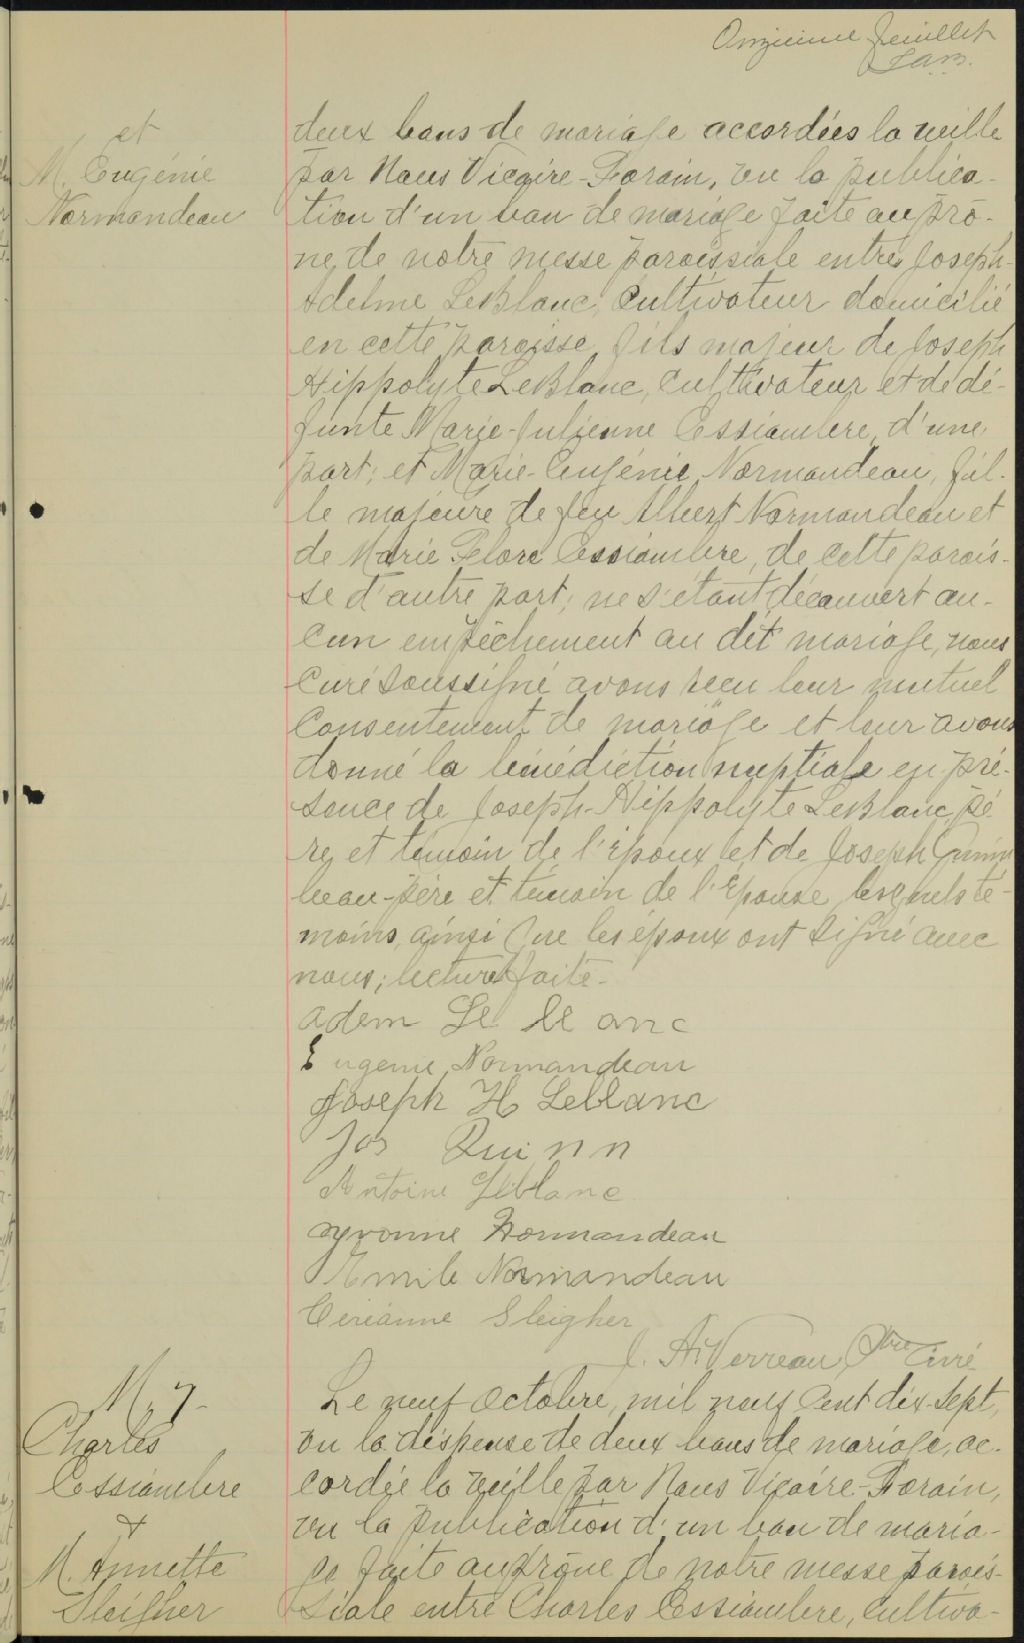 Onzième feuillet
et
M. Eugénie
Normandeau
deux bans de mariage accordées la veille
par Nous Vicaire-Forain, vu la publica-
tion d'un ban de mariage faite au prô-
ne de notre messe paroissiale entre Joseph-
Adelme LeBlanc, Cultivateur domicilié
en cette paroisse, fils majeur de Joseph
Hippolyte LeBlanc, cultivateur et de dé-
funte Marie-Julienne Cessiambre, d'une
part; et Marie-Eugénie Normandeau, fil-
le majeure de feu Albert Normandeau et
de Marie Flore Cessiambre, de cette parois-
se d'autre part; ne s'étant découvert au-
cun empêchement au dit mariage, nous
Curé soussigné avons reçu leur mutuel
Consentement de mariage et leur avons
donné la bénédiction nuptiale en pré-
sence de Joseph-Hippolyte LeBlanc, pè-
re, et témoin de l'époux et de Joseph
beau-père et témoin de l'Epouse lesquels té-
moins, ainsi que les époux ont signé avec
nous; lecture faite-
adem Le blanc
Eugenie Normandeau
Joseph H Leblanc
Jos Quinn
Antoine Leblanc
Yvonne Normandeau
Emile Normandeau
Cerianne Sleigher
J. A. Verreau, Ptre Curé
M. 7-
Charles
Cessiambre
+
M. Annette
Sleigher
Le neuf octobre, mil neuf cent dix-sept,
vu la dispense de deux bans de mariage, ac-
cordée la veille par Nous Vicaire-Forain,
vu la publication d'un ban de maria-
ge faite au prône de notre messe parois-
siale entre Charles Cessiambre, Cultiva-